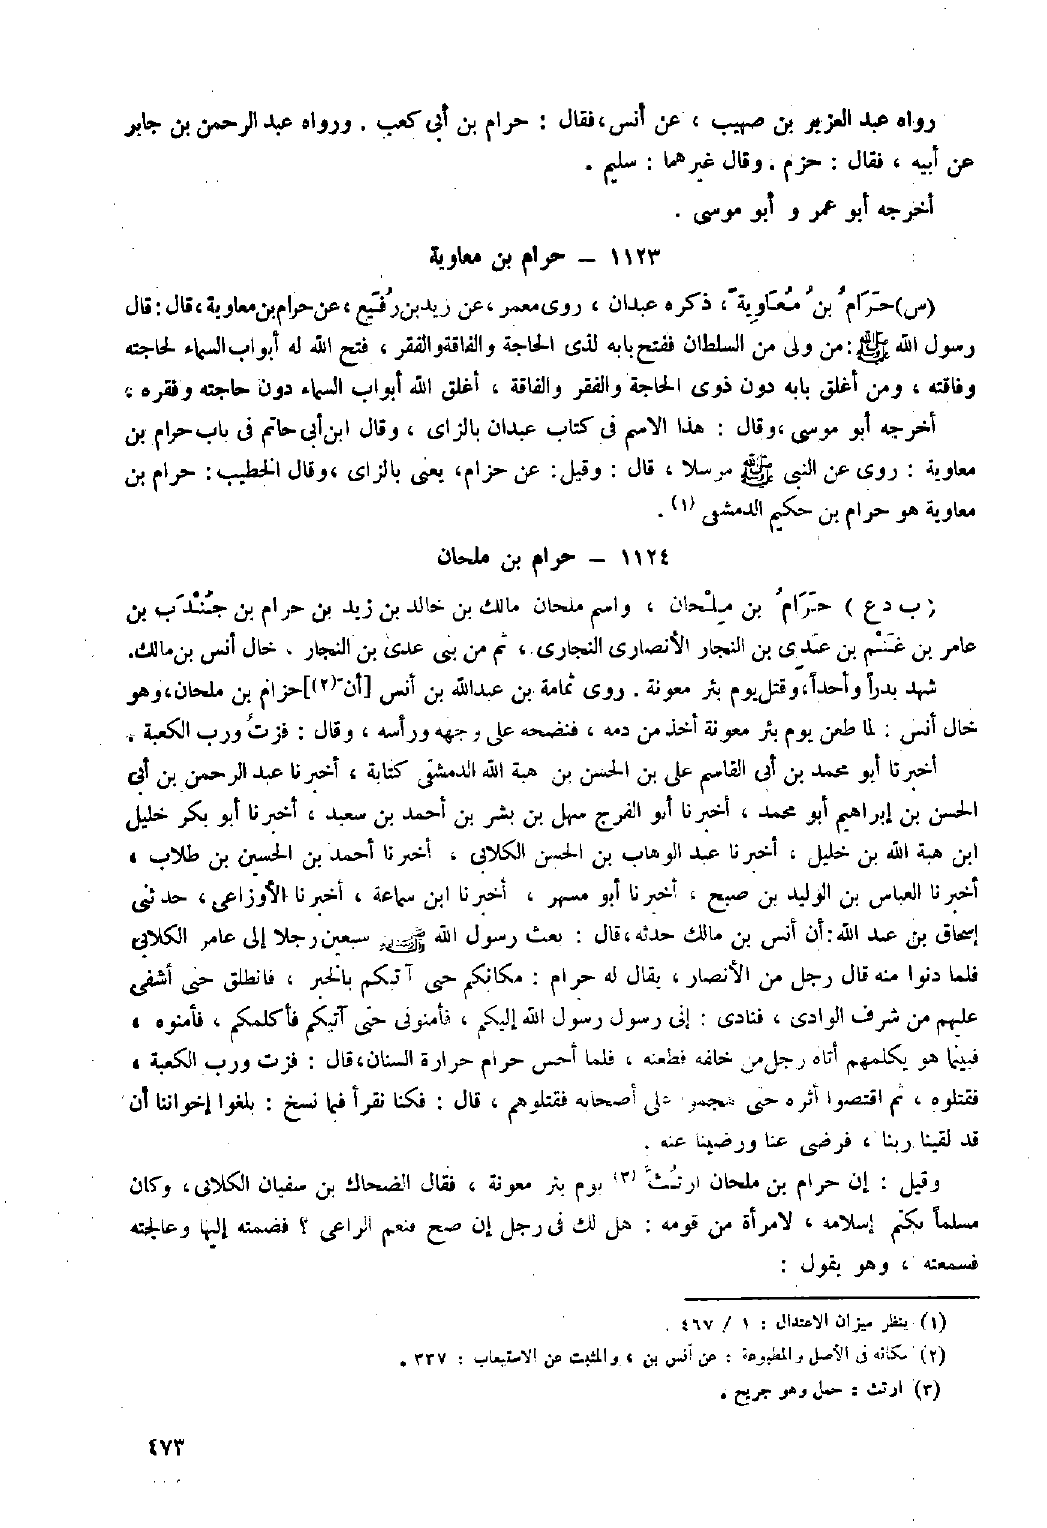 رواه عبد العزيز بن صهيب ، عن أنس، فقال : حرام بن أبي كعب . ورواه عبد الرحمن بن جابر
عن أبيه ، فقال : حزم . وقال غيرهما : سليم .
أخرجه أبو عمر و أبو موسى .
١١٢٣ – حرام بن معاوية
(س) حَرَامُ بنُ مُعَاوِيةَ، ذكره عبدان ، روى معمر ، عن زيد بن رُفَيع ، عن حرام بن معاوية ، قال : قال
رسول الله ﷺ : من ولى من السلطان ففتح بابه لذى الحاجة والفاقة والفقر ، فتح الله له أبواب السماء لحاجته
وفاقته ، ومن أغلق بابه دون ذوى الحاجة والفقر والفاقة ، أغلق الله أبواب السماء دون حاجته وفقره ،
أخرجه أبو موسى ، وقال : هذا الاسم فى كتاب عبدان بالزاى ، وقال ابن أبى حاتم فى باب حرام بن
معاوية : روى عن النبى ﷺ مرسلا ، قال : وقيل : عن حزام، يعنى بالزاى ، وقال الخطيب : حرام بن
معاوية هو حرام بن حكيم الدمشقى (١) .
١١٢٤ – حرام بن ملحان
( ب د ع ) حَرَامُ بن مِلْحان ، واسم ملحان مالك بن خالد بن زيد بن حرام بن جُنْدَب بن
عامر بن غَنْم بن عَدِى بن النجار الأنصارى النجارى ، ثم من بنى عدى بن النجار . خال أنس بن مالك.
شهد بدراً وأحداً، وقتل يوم بئر معونة . روى ثمامة بن عبدالله بن أنس [أن (٢)] حزام بن ملحان، وهو
خال أنس : لما طعن يوم بئر معونة أخذ من دمه ، فنضحه على وجهه ورأسه ، وقال : فزتُ ورب الكعبة .
أخبرنا أبو محمد بن أبى القاسم على بن الحسن بن هبة الله الدمشقى كتابة ، أخبرنا عبد الرحمن بن أبى
الحسن بن إبراهيم أبو محمد ، أخبرنا أبو الفرج سهل بن بشر بن أحمد بن سعيد ، أخبرنا أبو بكر خليل
ابن هبة الله بن خليل ، أخبرنا عبد الوهاب بن الحسن الكلابى ، أخبرنا أحمد بن الحسين بن طلاب ،
أخبرنا العباس بن الوليد بن صبح ، أخبرنا أبو مسهر ، أخبرنا ابن سماعة ، أخبرنا الأوزاعى ، حدثنى
إسحاق بن عبد الله : أن أنس بن مالك حدثه ، قال : بعث رسول الله ﷺ سبعين رجلا إلى عامر الكلابى
فلما دنوا منه قال رجل من الأنصار ، يقال له حرام : مكانكم حتى آتيكم بالخبر ، فانطلق حتى أشفى
عليهم من شرف الوادى ، فنادى : إنى رسول رسول الله إليكم ، فأمنونى حتى آتيكم فأكلمكم ، فأمنوه ،
فبينما هو يكلمهم أتاه رجل من خلفه فطعنه ، فلما أحس حرام حرارة السنان، قال : فزت ورب الكعبة ،
فقتلوه ، ثم اقتصوا أثره حتى هجموا على أصحابه فقتلوهم ، قال : فكنا نقرأ فيما نسخ : بلغوا إخواننا أن
قد لقينا ربنا ، فرضى عنا ورضينا عنه .
وقيل : إن حرام بن ملحان ارتُثَّ (٣) يوم بئر معونة ، فقال الضحاك بن سفيان الكلابى، وكان
مسلماً يكتم إسلامه ، لامرأة من قومه : هل لك فى رجل إن صح فنعم الراعى ؟ فضمته إليها وعالجته
فسمعته ، وهو يقول :
(١) ينظر ميزان الاعتدال : ١ / ٤٦٧ .
(٢) مكانه فى الأصل والمطبوعة : عن أنس بن ، والمثبت عن الاستيعاب : ٣٣٧ .
(٣) ارتث : حمل وهو جريح .
٤٧٣